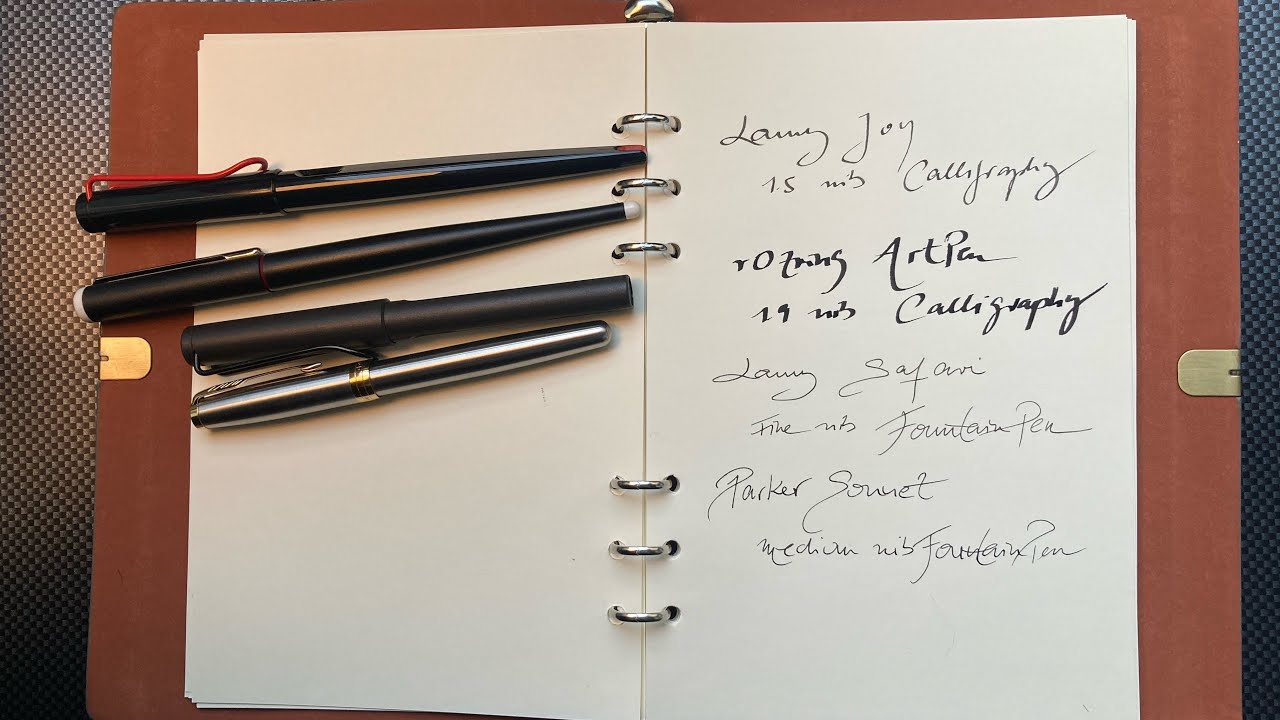 Lamy Joy
1.5 nib Calligraphy
rOtring ArtPen
1.9 nib Calligraphy
Lamy Safari
Fine nib Fountain Pen
Parker Sonnet
medium nib Fountain Pen